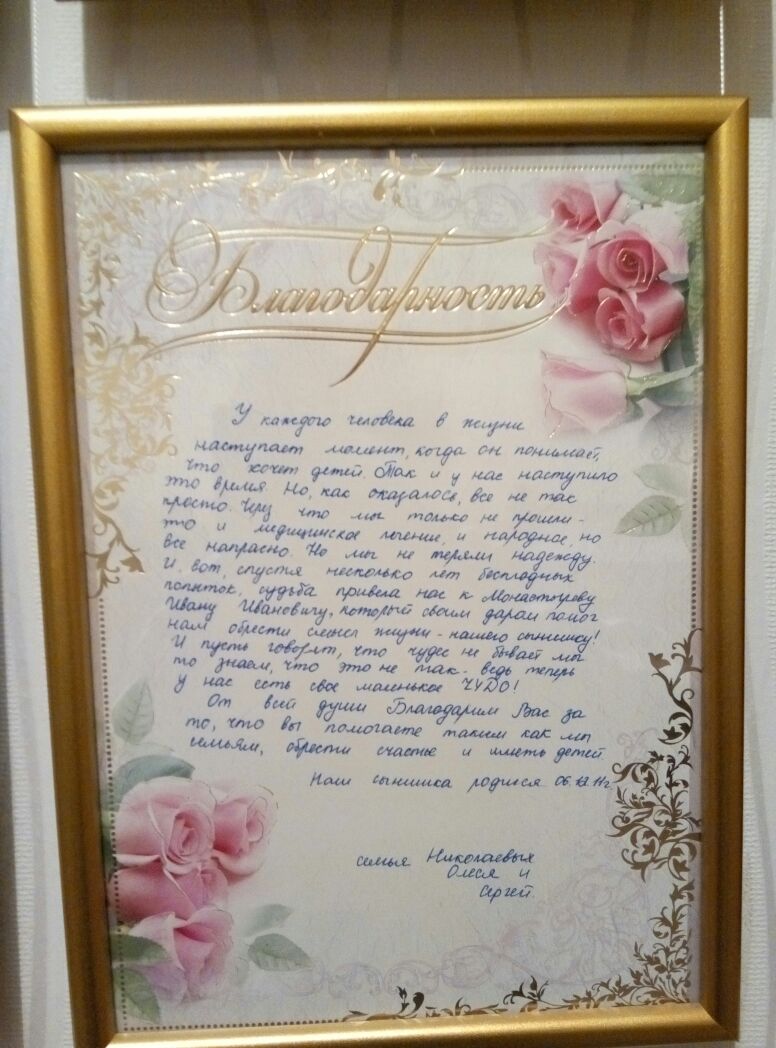 Благодарность
У каждого человека в жизни
наступает момент, когда он понимает,
что хочет детей. Так и у нас наступило
это время. Но, как оказалось, все не так
просто. Через что мы только не прошли -
это и медицинское лечение, и народное, но
все напрасно. Но мы не теряли надежду.
И, вот, спустя несколько лет бесплодных
попыток, судьба привела нас к Монастыреву
Ивану Ивановичу, который своим даром помог
нам обрести смысл жизни - нашего сынишку!
И пусть говорят, что чудес не бывает мы
то знаем, что это не так - ведь теперь
у нас есть свое маленькое ЧУДО!
От всей души Благодарим Вас за
то, что вы помогаете таким как мы
семьям, обрести счастье и иметь детей.
Наш сынишка родился
семья Николаевых
Олеся и
Сергей.